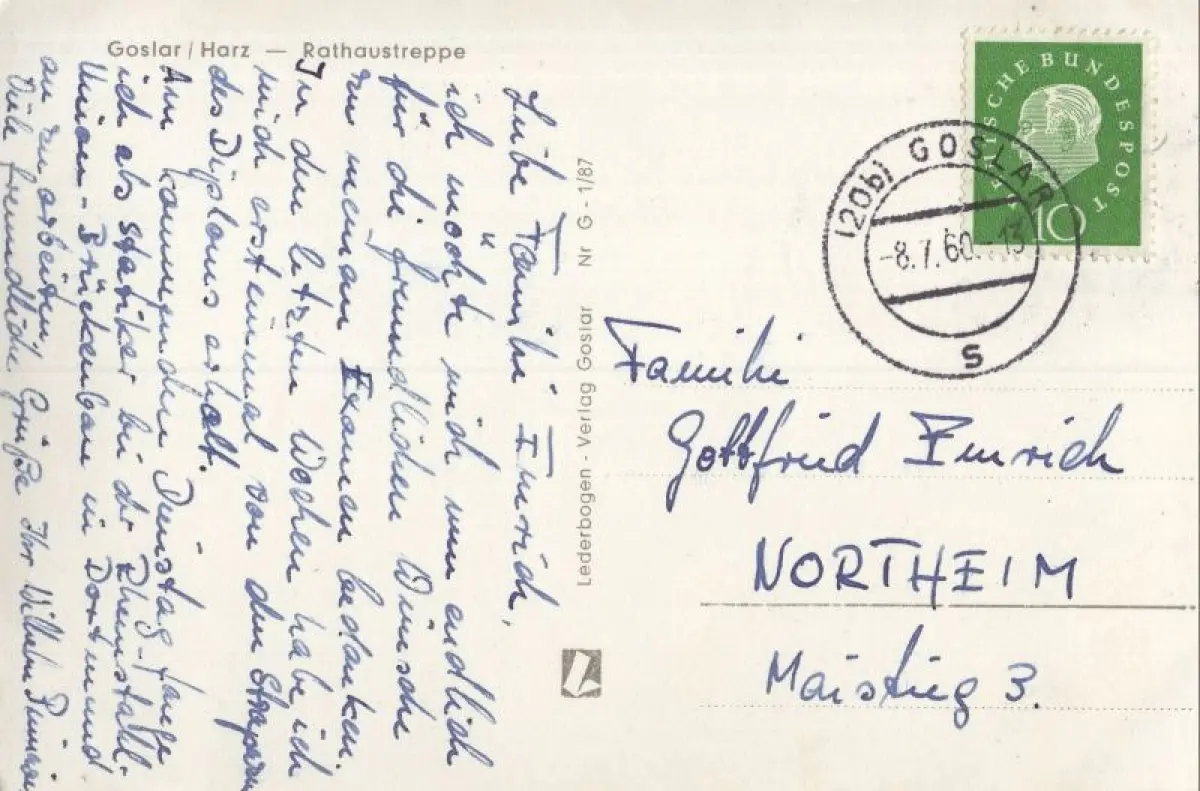 Goslar / Harz — Rathaustreppe
Liebe Familie Emrich,
ich möchte mich nun endlich
für die freundlichen Wünsche
zu meinem Examen bedanken.
In den letzten Wochen habe ich
mich ersteinmal von den Strapazen
des Diploms erholt.
Am kommenden Dienstag fange
ich als Statiker bei der Rheinstahl-
Union-Brückenbau in Dortmund
an zu arbeiten.
Viele freundliche Grüße Ihr Wilhelm
Lederbogen - Verlag Goslar Nr G - 1/87
DEUTSCHE BUNDESPOST
10
(20b) GOSLAR
-8.7.60-13
s
Familie
Gottfried Emrich
NORTHEIM
Maistieg 3.